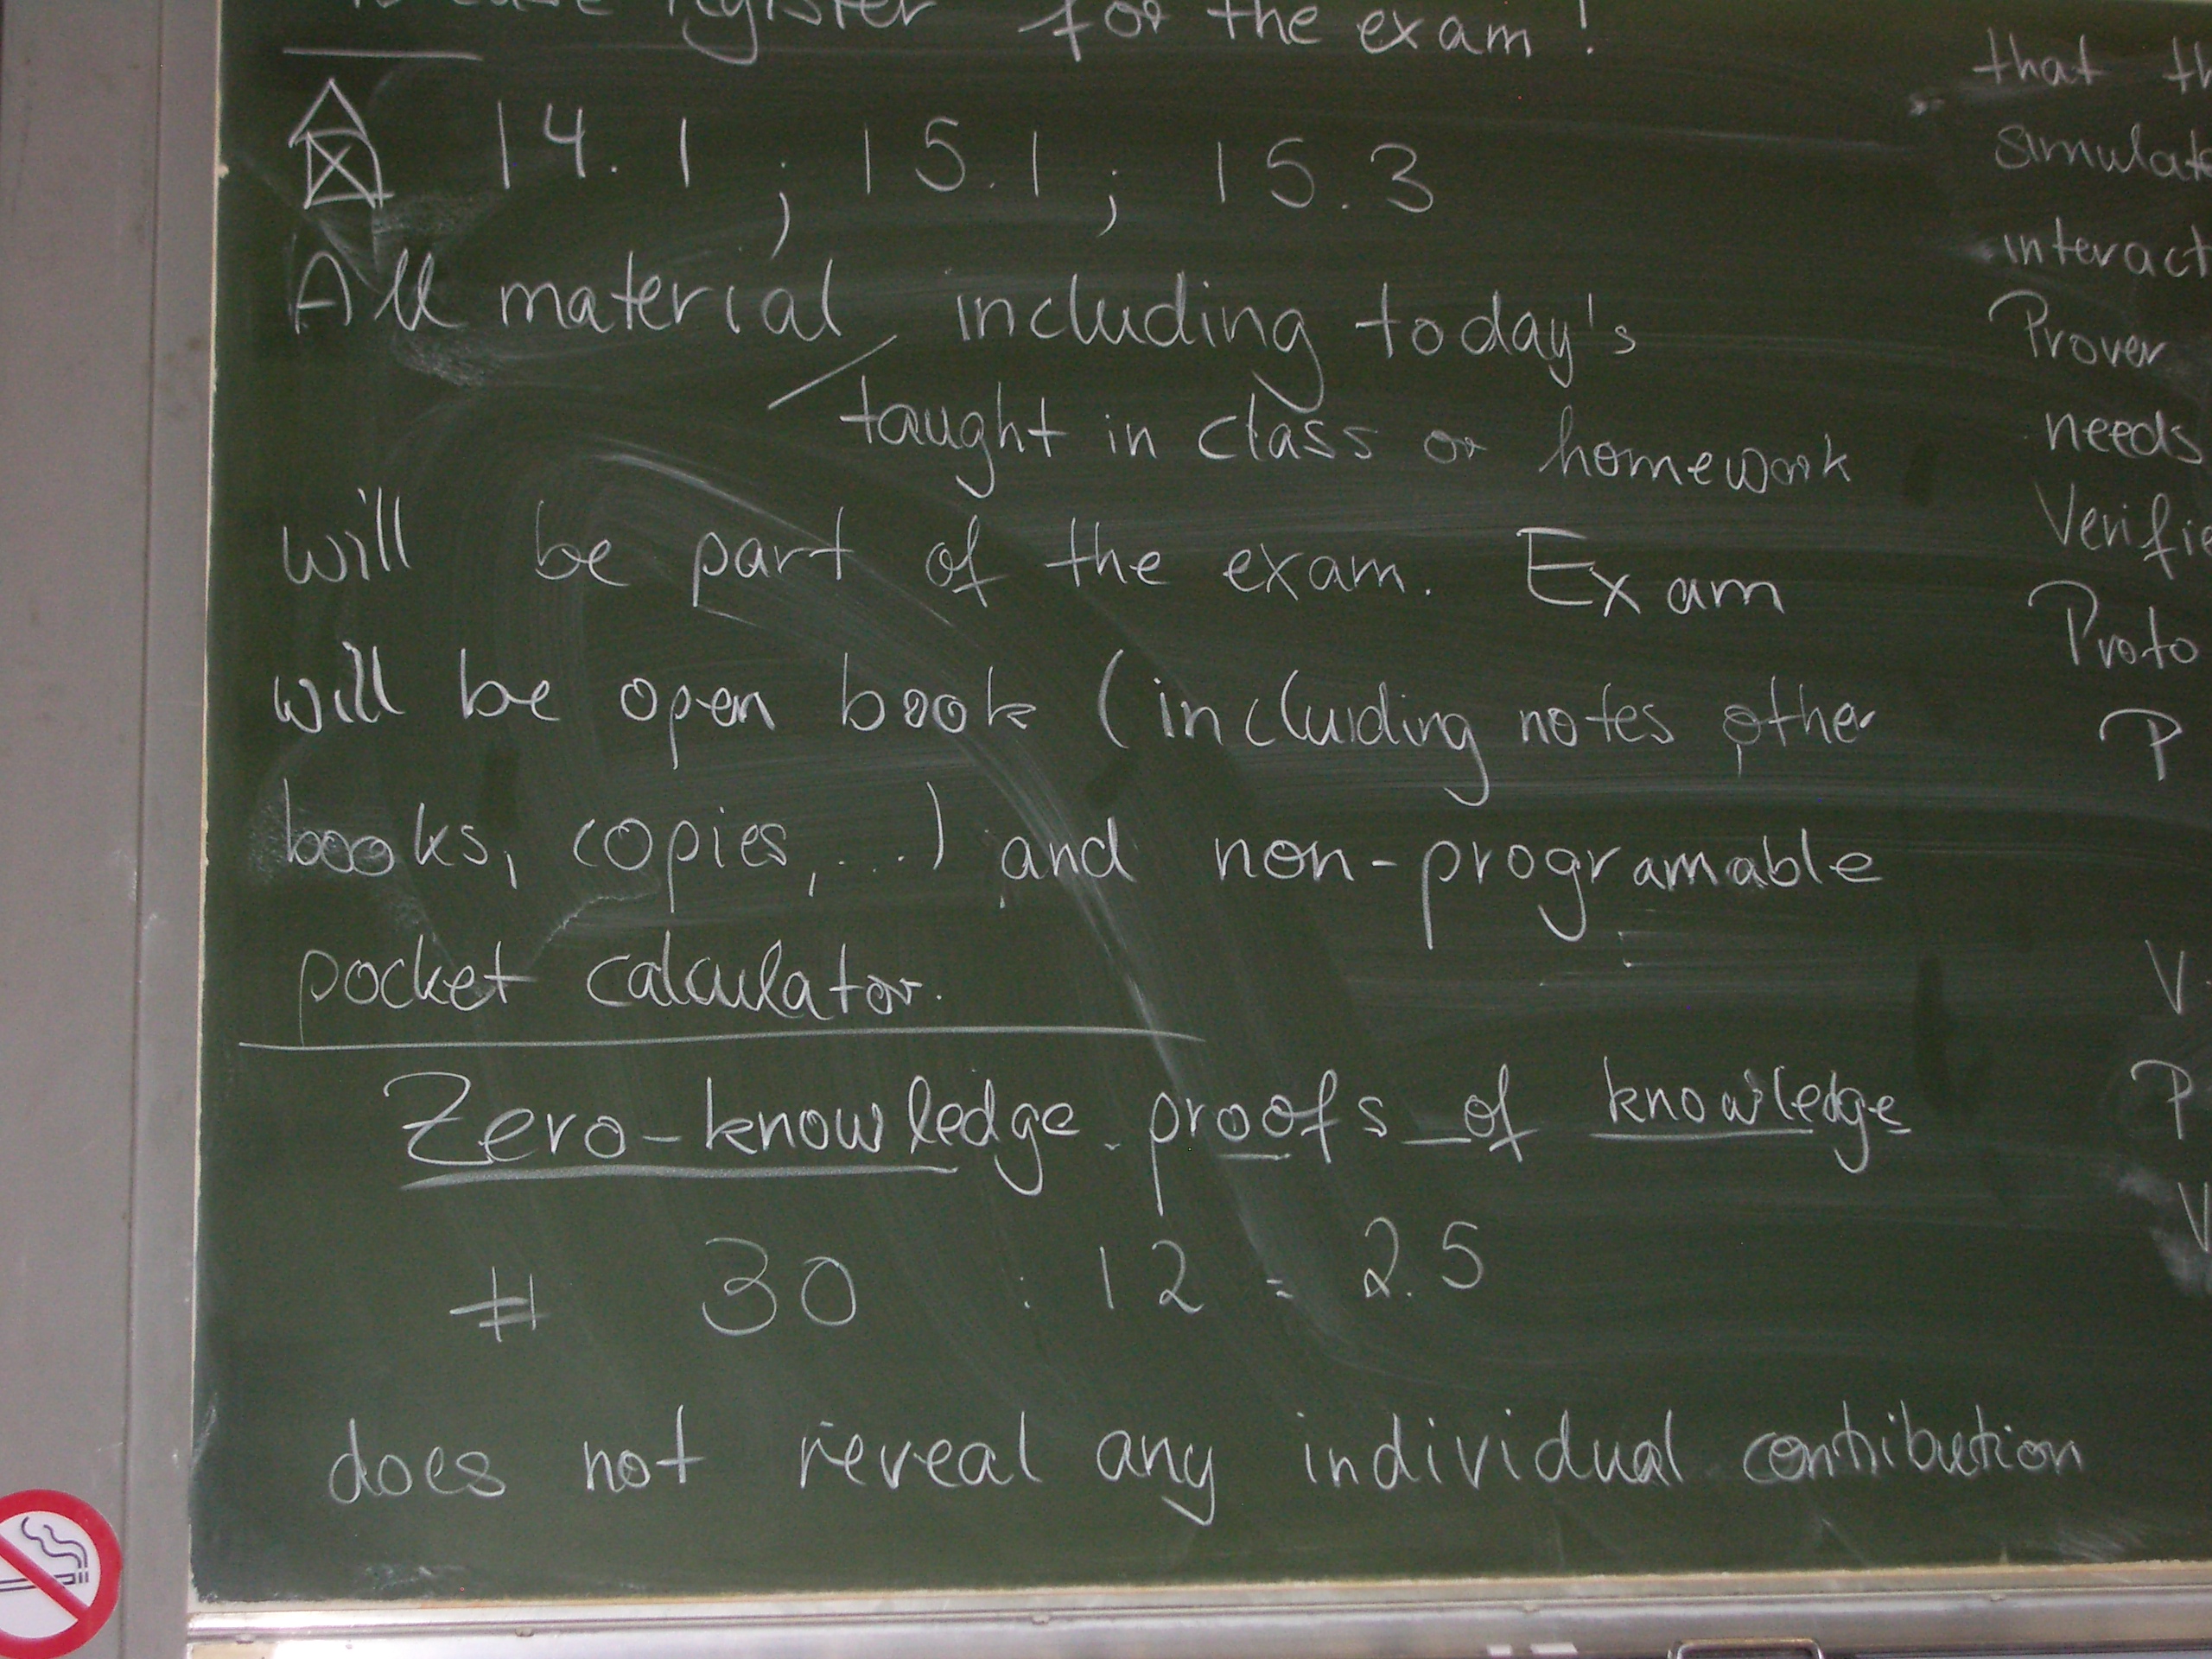 register for the exam!
14.1 ; 15.1 ; 15.3
All material including today's
taught in class or homework
will be part of the exam. Exam
will be open book (including notes other
books, copies, ...) and non-programable
pocket calculator.
Zero-knowledge proofs of knowledge
# 30 : 12 = 2.5
does not reveal any individual contribution
that
needs
Prover
P
V
P
V